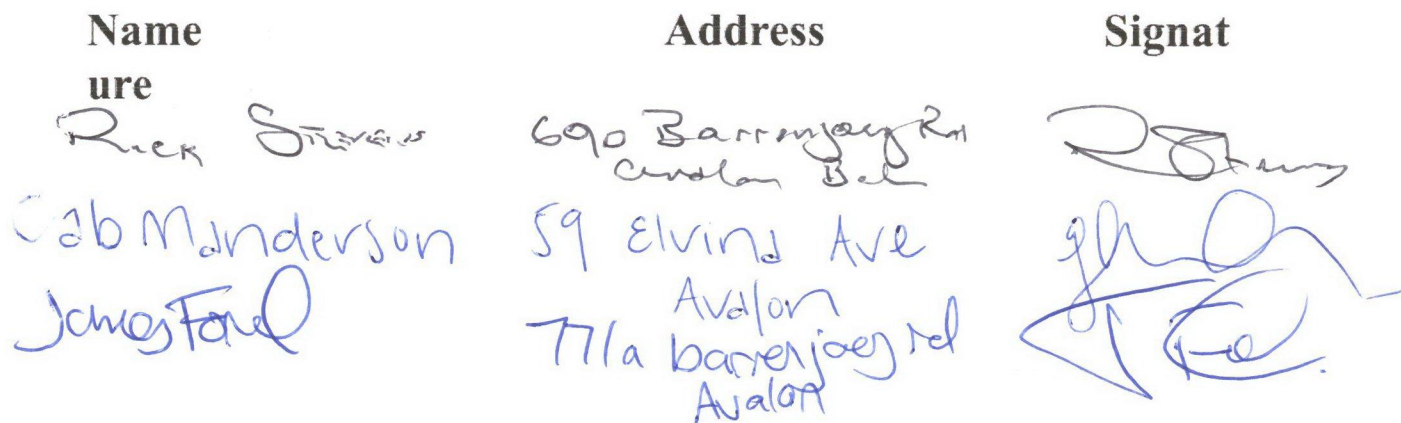 Name Address Signat
ure
Rick Stevens 690 Barrenjoey Rd
Avalon Bch
Gab Manderson 59 Elvina Ave
Avalon
James Ford 77/a barrenjoey rd
Avalon